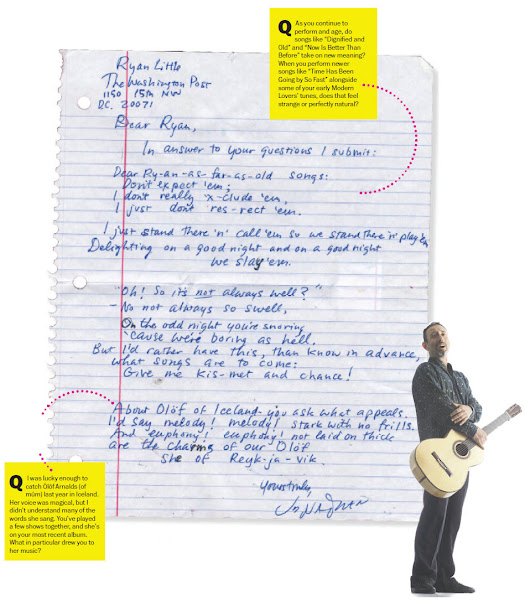 Q As you continue to
perform and age, do
songs like "Dignified and
Old" and "Now Is Better Than
Before" take on new meaning?
When you perform newer
songs like "Time Has Been
Going by So Fast" alongside
some of your early Modern
Lovers' tunes, does that feel
strange or perfectly natural?
Ryan Little
The Washington Post
1150 15th NW
DC. 20071
Dear Ryan,
In answer to your questions I submit:
Dear Ry-an-as-far-as-old songs:
Don't expect 'em;
I don't really 'x-clude 'em,
I just don't 'res-rect 'em.
I just stand there 'n' call 'em so we stand there 'n' play 'em
Delighting on a good night and on a good night
we slay 'em.
"Oh! So it's not always well?"
- No not always so swell,
On the odd night you're snoring
'cause we're boring as hell.
But I'd rather have this, than know in advance,
what songs are to come:
Give me kis-met and chance!
About Olöf of Iceland you ask what appeals.
I'd say melody! melody! stark with no frills.
And euphony! euphony! not laid on thick
are the charms of our Olöf
She of Reyk-ja-vik
Yours truly,
Jonathan
Q I was lucky enough to
catch Ólöf Arnalds (of
múm) last year in Iceland.
Her voice was magical, but I
didn't understand many of the
words she sang. You've played
a few shows together, and she's
on your most recent album.
What in particular drew you to
her music?